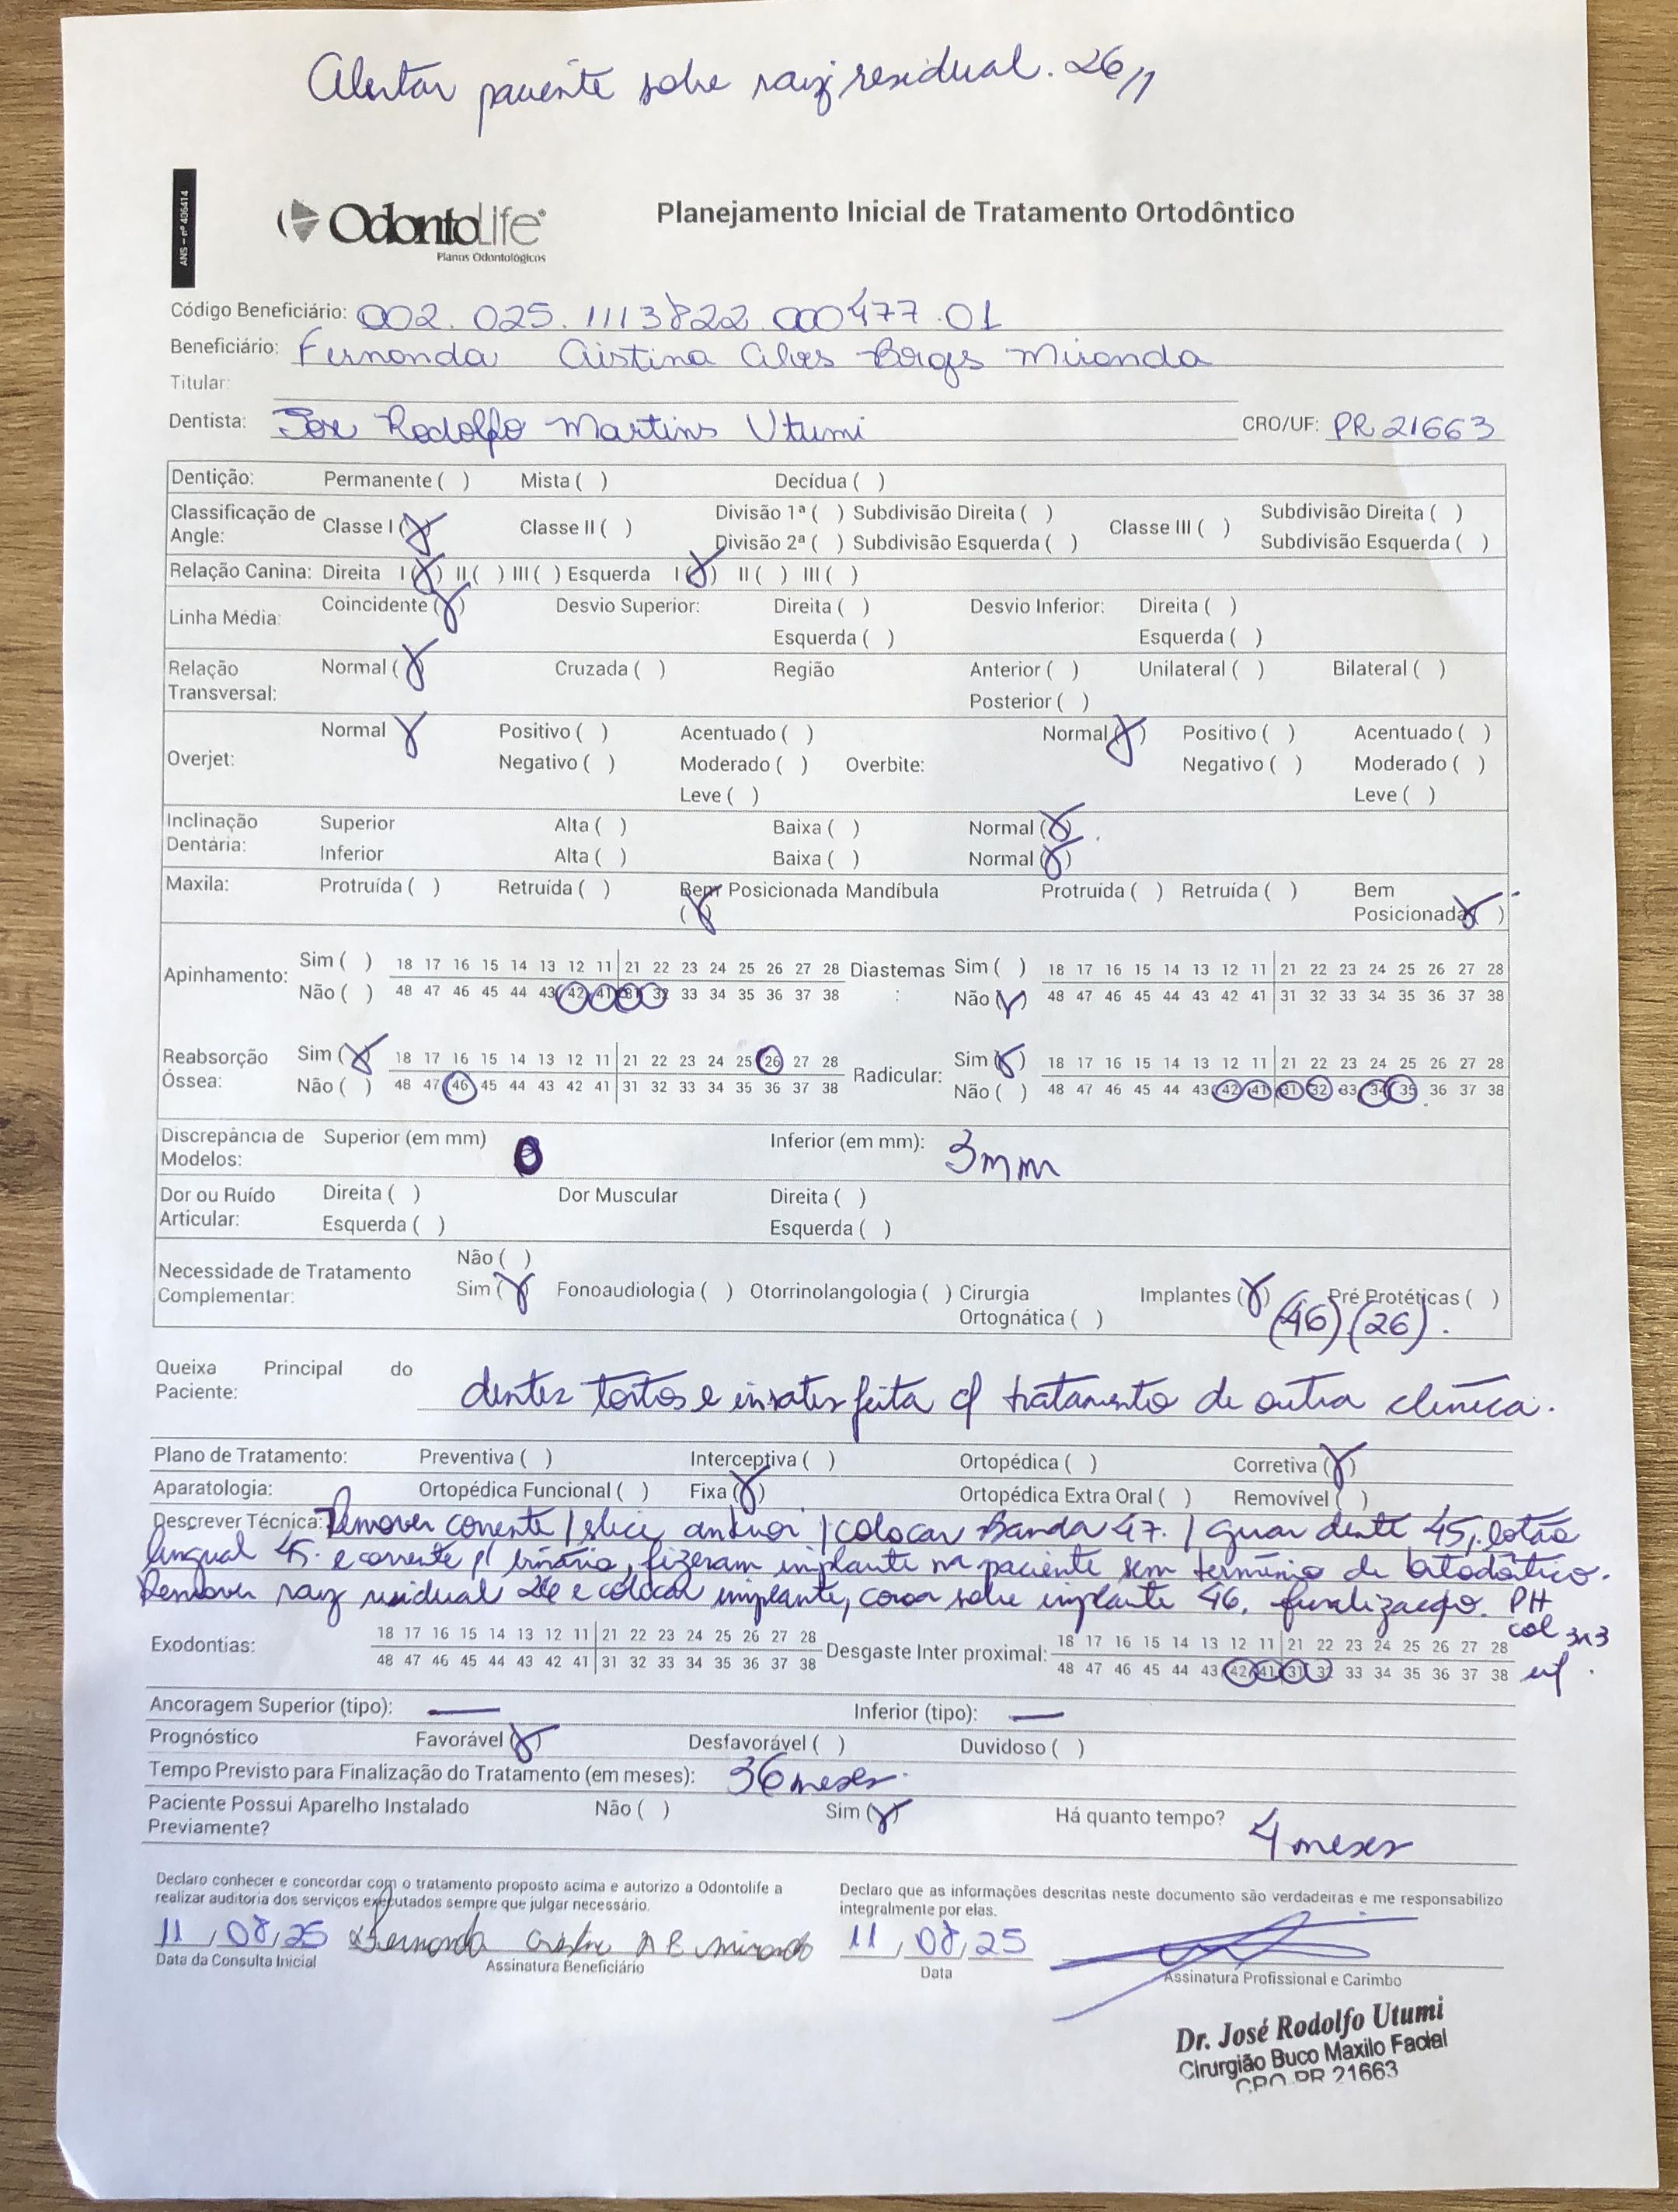 Alertar paciente sobre raiz residual. 26//
ANS – nº 406414
OdontoLife®
Planos Odontológicos
Planejamento Inicial de Tratamento Ortodôntico
Código Beneficiário: 002.025.1113822.000477.01
Beneficiário: Fernanda Cristina Alves Borges Miranda
Titular:
Dentista: Jose Rodolfo Martins Utumi CRO/UF: PR 21663
Dentição: Permanente ( ) Mista ( ) Decídua ( )
Classificação de Angle: Classe I (X) Classe II ( ) Divisão 1ª ( ) Subdivisão Direita ( ) Classe III ( ) Subdivisão Direita ( )
Divisão 2ª ( ) Subdivisão Esquerda ( ) Subdivisão Esquerda ( )
Relação Canina: Direita I (X) II ( ) III ( ) Esquerda I (X) II ( ) III ( )
Linha Média: Coincidente (X) Desvio Superior: Direita ( ) Desvio Inferior: Direita ( )
Esquerda ( ) Esquerda ( )
Relação Transversal: Normal (X) Cruzada ( ) Região Anterior ( ) Unilateral ( ) Bilateral ( )
Posterior ( )
Overjet: Normal X Positivo ( ) Acentuado ( ) Normal (X) Positivo ( ) Acentuado ( )
Negativo ( ) Moderado ( ) Overbite: Negativo ( ) Moderado ( )
Leve ( ) Leve ( )
Inclinação Dentária: Superior Alta ( ) Baixa ( ) Normal (X)
Inferior Alta ( ) Baixa ( ) Normal (X)
Maxila: Protruída ( ) Retruída ( ) Bem Posicionada (X) Mandíbula Protruída ( ) Retruída ( ) Bem Posicionada (X)
Apinhamento: Sim ( ) 18 17 16 15 14 13 12 11 21 22 23 24 25 26 27 28 Diastemas: Sim ( ) 18 17 16 15 14 13 12 11 21 22 23 24 25 26 27 28
Não ( ) 48 47 46 45 44 43 42 41 31 32 33 34 35 36 37 38 Não (X) 48 47 46 45 44 43 42 41 31 32 33 34 35 36 37 38
Reabsorção Óssea: Sim (X) 18 17 16 15 14 13 12 11 21 22 23 24 25 26 27 28 Radicular: Sim (X) 18 17 16 15 14 13 12 11 21 22 23 24 25 26 27 28
Não ( ) 48 47 46 45 44 43 42 41 31 32 33 34 35 36 37 38 Não ( ) 48 47 46 45 44 43 42 41 31 32 33 34 35 36 37 38
Discrepância de Modelos: Superior (em mm) 0 Inferior (em mm): 3mm
Dor ou Ruído Articular: Direita ( ) Dor Muscular Direita ( )
Esquerda ( ) Esquerda ( )
Não ( )
Necessidade de Tratamento Complementar: Sim (X) Fonoaudiologia ( ) Otorrinolangologia ( ) Cirurgia Ortognática ( ) Implantes (X) Pré Protéticas ( )
(46) (26).
Queixa Principal do Paciente: dentes tortos e insatisfeita c/ tratamento de outra clínica.
Plano de Tratamento: Preventiva ( ) Interceptiva ( ) Ortopédica ( ) Corretiva (X)
Aparatologia: Ortopédica Funcional ( ) Fixa (X) Ortopédica Extra Oral ( ) Removível ( )
Descrever Técnica: Remover corrente / slice anterior / colocar Banda 47. / girar dente 45, botão
lingual 45. e corrente p/ binário, fizeram implante na paciente sem término de ortodôntico.
Remover raiz residual 26 e colocar implante, coroa sobre implante 46, finalização. PH
col 3x3
inf.
Exodontias: 18 17 16 15 14 13 12 11 21 22 23 24 25 26 27 28 Desgaste Inter proximal: 18 17 16 15 14 13 12 11 21 22 23 24 25 26 27 28
48 47 46 45 44 43 42 41 31 32 33 34 35 36 37 38 48 47 46 45 44 43 42 41 31 32 33 34 35 36 37 38
Ancoragem Superior (tipo): — Inferior (tipo): —
Prognóstico Favorável (X) Desfavorável ( ) Duvidoso ( )
Tempo Previsto para Finalização do Tratamento (em meses): 36 meses.
Paciente Possui Aparelho Instalado Previamente? Não ( ) Sim (X) Há quanto tempo? 4 meses
Declaro conhecer e concordar com o tratamento proposto acima e autorizo a Odontolife a
realizar auditoria dos serviços executados sempre que julgar necessário.
Declaro que as informações descritas neste documento são verdadeiras e me responsabilizo
integralmente por elas.
11/08/25 Fernanda Cristina A B Miranda 11/08/25
Data da Consulta Inicial Assinatura Beneficiário Data Assinatura Profissional e Carimbo
Dr. José Rodolfo Utumi
Cirurgião Buco Maxilo Facial
CRO PR 21663